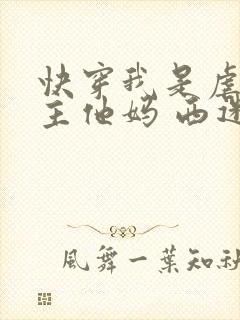 快穿我是虐
主他妈 西迷
風舞一葉知秋